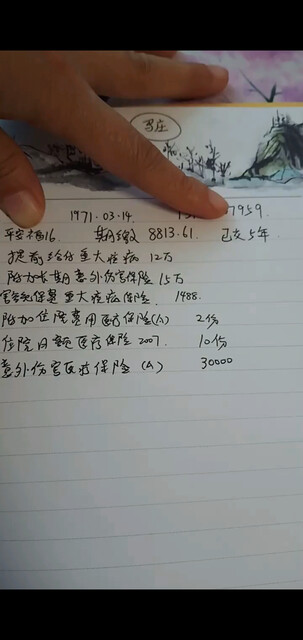 马庄
1971.03.14. 7959.
平安福16. 期缴 8813.61. 已交5年
提前给付重大疾病 12万
附加长期意外伤害保险 15万
重大疾病保险. 1488.
附加住院费用医疗保险(A) 2份
住院日额医疗保险 2007. 10份
意外伤害医疗保险 (A) 30000